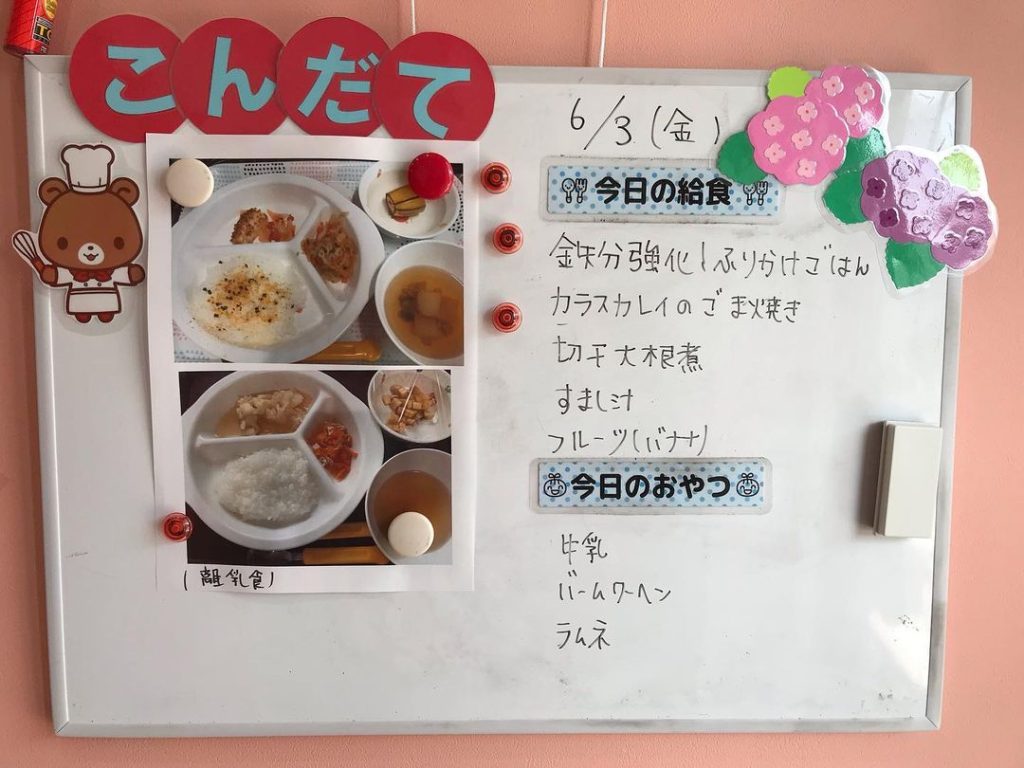 こんだて
6/3(金)
今日の給食
鉄分強化ふりかけごはん
カラスカレイのごま焼き
切干大根煮
すまし汁
フルーツ(バナナ)
今日のおやつ
牛乳
バームクーヘン
ラムネ
(離乳食)